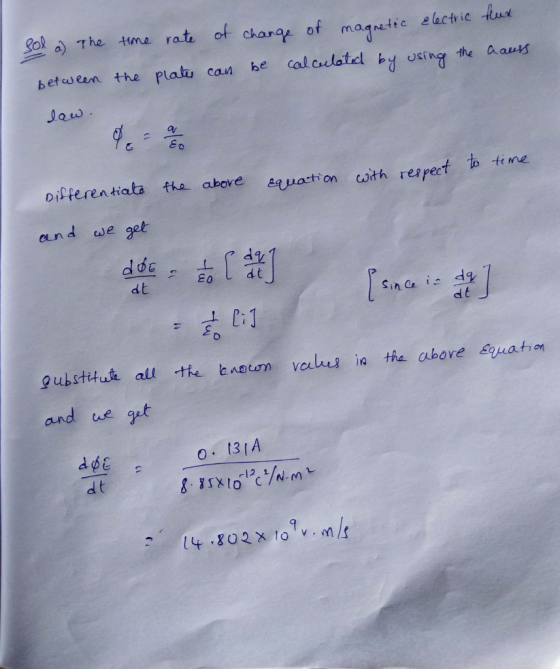 Sol a) The time rate of change of magnetic electric flux
between the plates can be calculated by using the Gauss
law.
φ_E = q/ε0
Differentiate the above equation with respect to time
and we get
dφE/dt = 1/ε0 [dq/dt] [since i = dq/dt]
= 1/ε0 [i]
Substitute all the known values in the above equation
and we get
dφE/dt = 0.131A / 8.85×10^-12 C²/N.m²
= 14.802 × 10^9 v.m/s